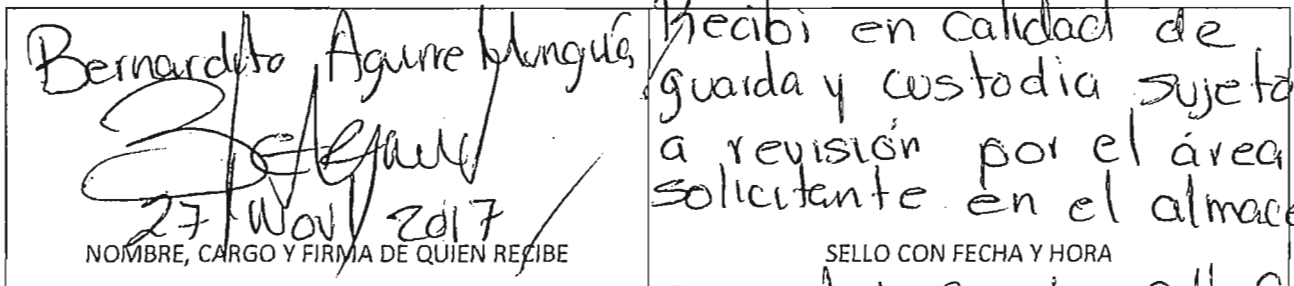 Bernardito Aguirre Munguía
27 Nov 2017
NOMBRE, CARGO Y FIRMA DE QUIEN RECIBE
Recibi en calidad de
guarda y custodia sujeto
a revisión por el área
solicitante en el almace
SELLO CON FECHA Y HORA